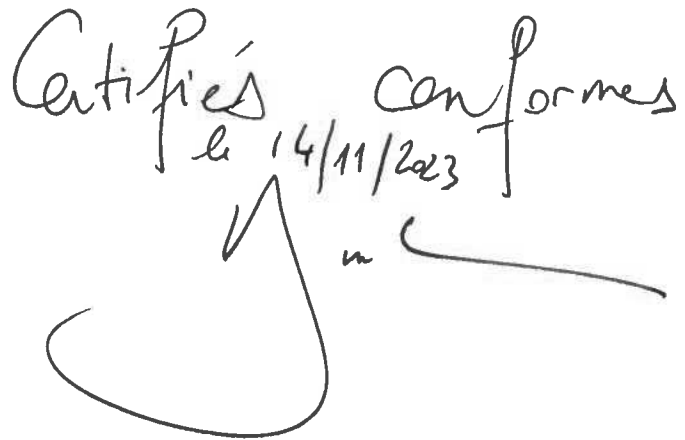 Certifiés conformes
le 14/11/2023